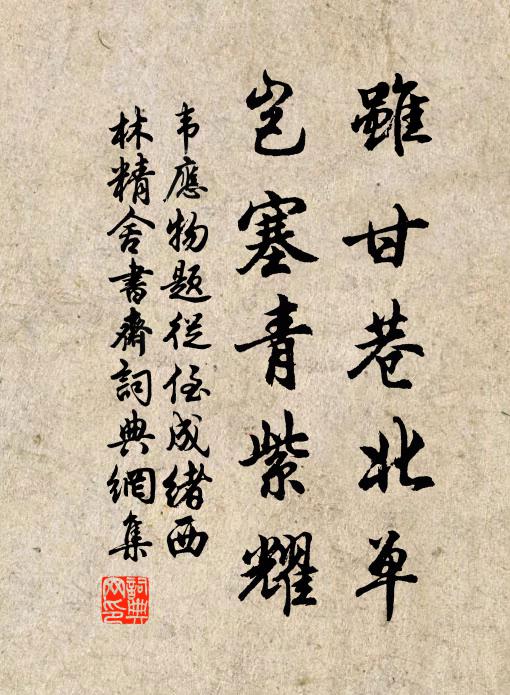 雖甘巷北单
岂塞青紫耀
韦應物題從侄成緒西
林精舍書齋詞典網集
詞典
网印